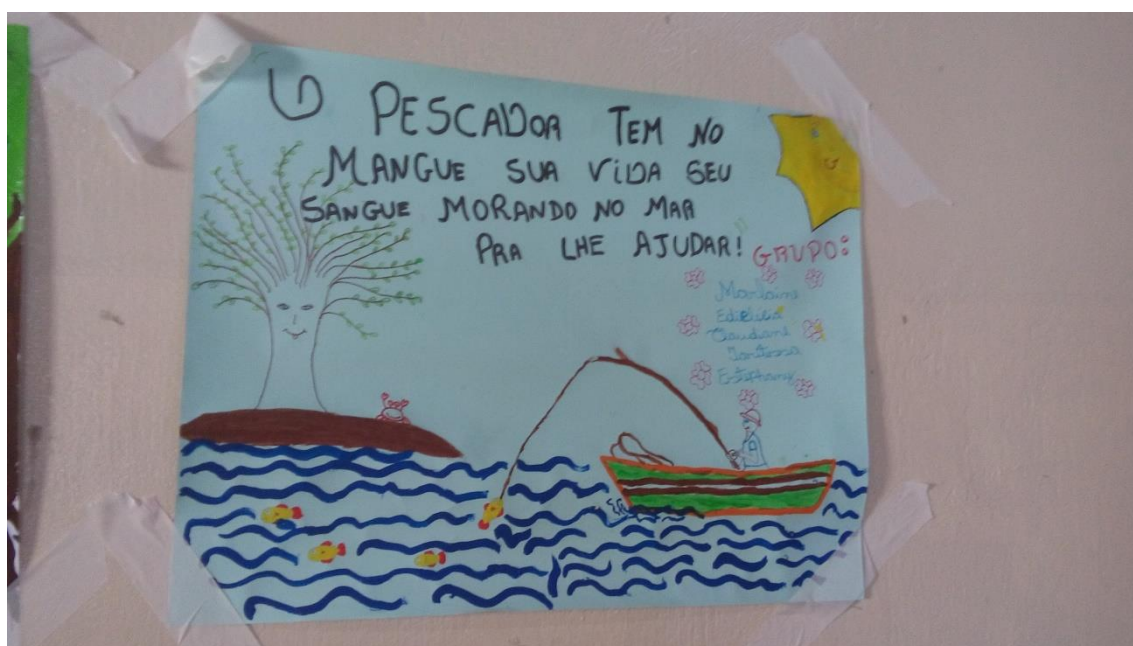 O PESCADOR TEM NO
MANGUE SUA VIDA SEU
SANGUE MORANDO NO MAR
PRA LHE AJUDAR!
GRUPO:
Marlaine
Claudiane
Estephany